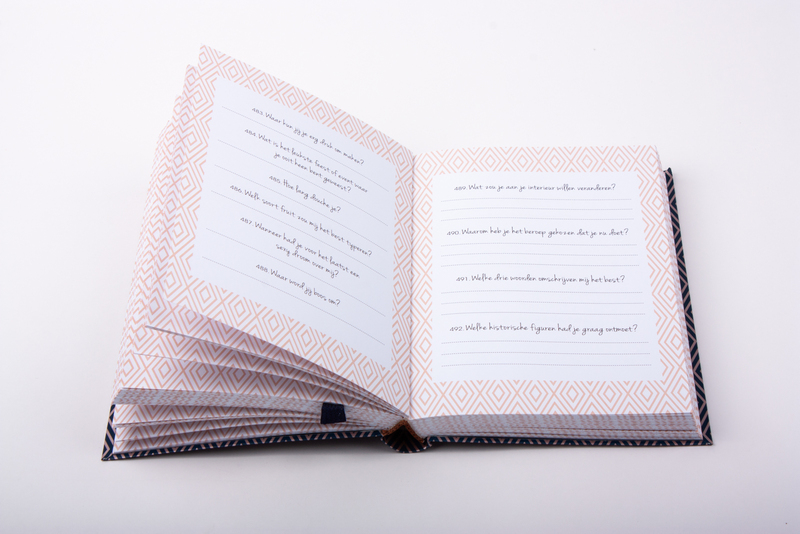 483. Waar kun jij je erg druk om maken?
484. Wat is het leukste feest of event waar
je ooit heen bent geweest?
485. Hoe lang douche je?
486. Welk soort fruit zou mij het best typeren?
487. Wanneer had je voor het laatst een
sexy droom over mij?
488. Waar word jij boos om?
489. Wat zou je aan je interieur willen veranderen?
490. Waarom heb je het beroep gekozen dat je nu doet?
491. Welke drie woorden omschrijven mij het best?
492. Welke historische figuren had je graag ontmoet?